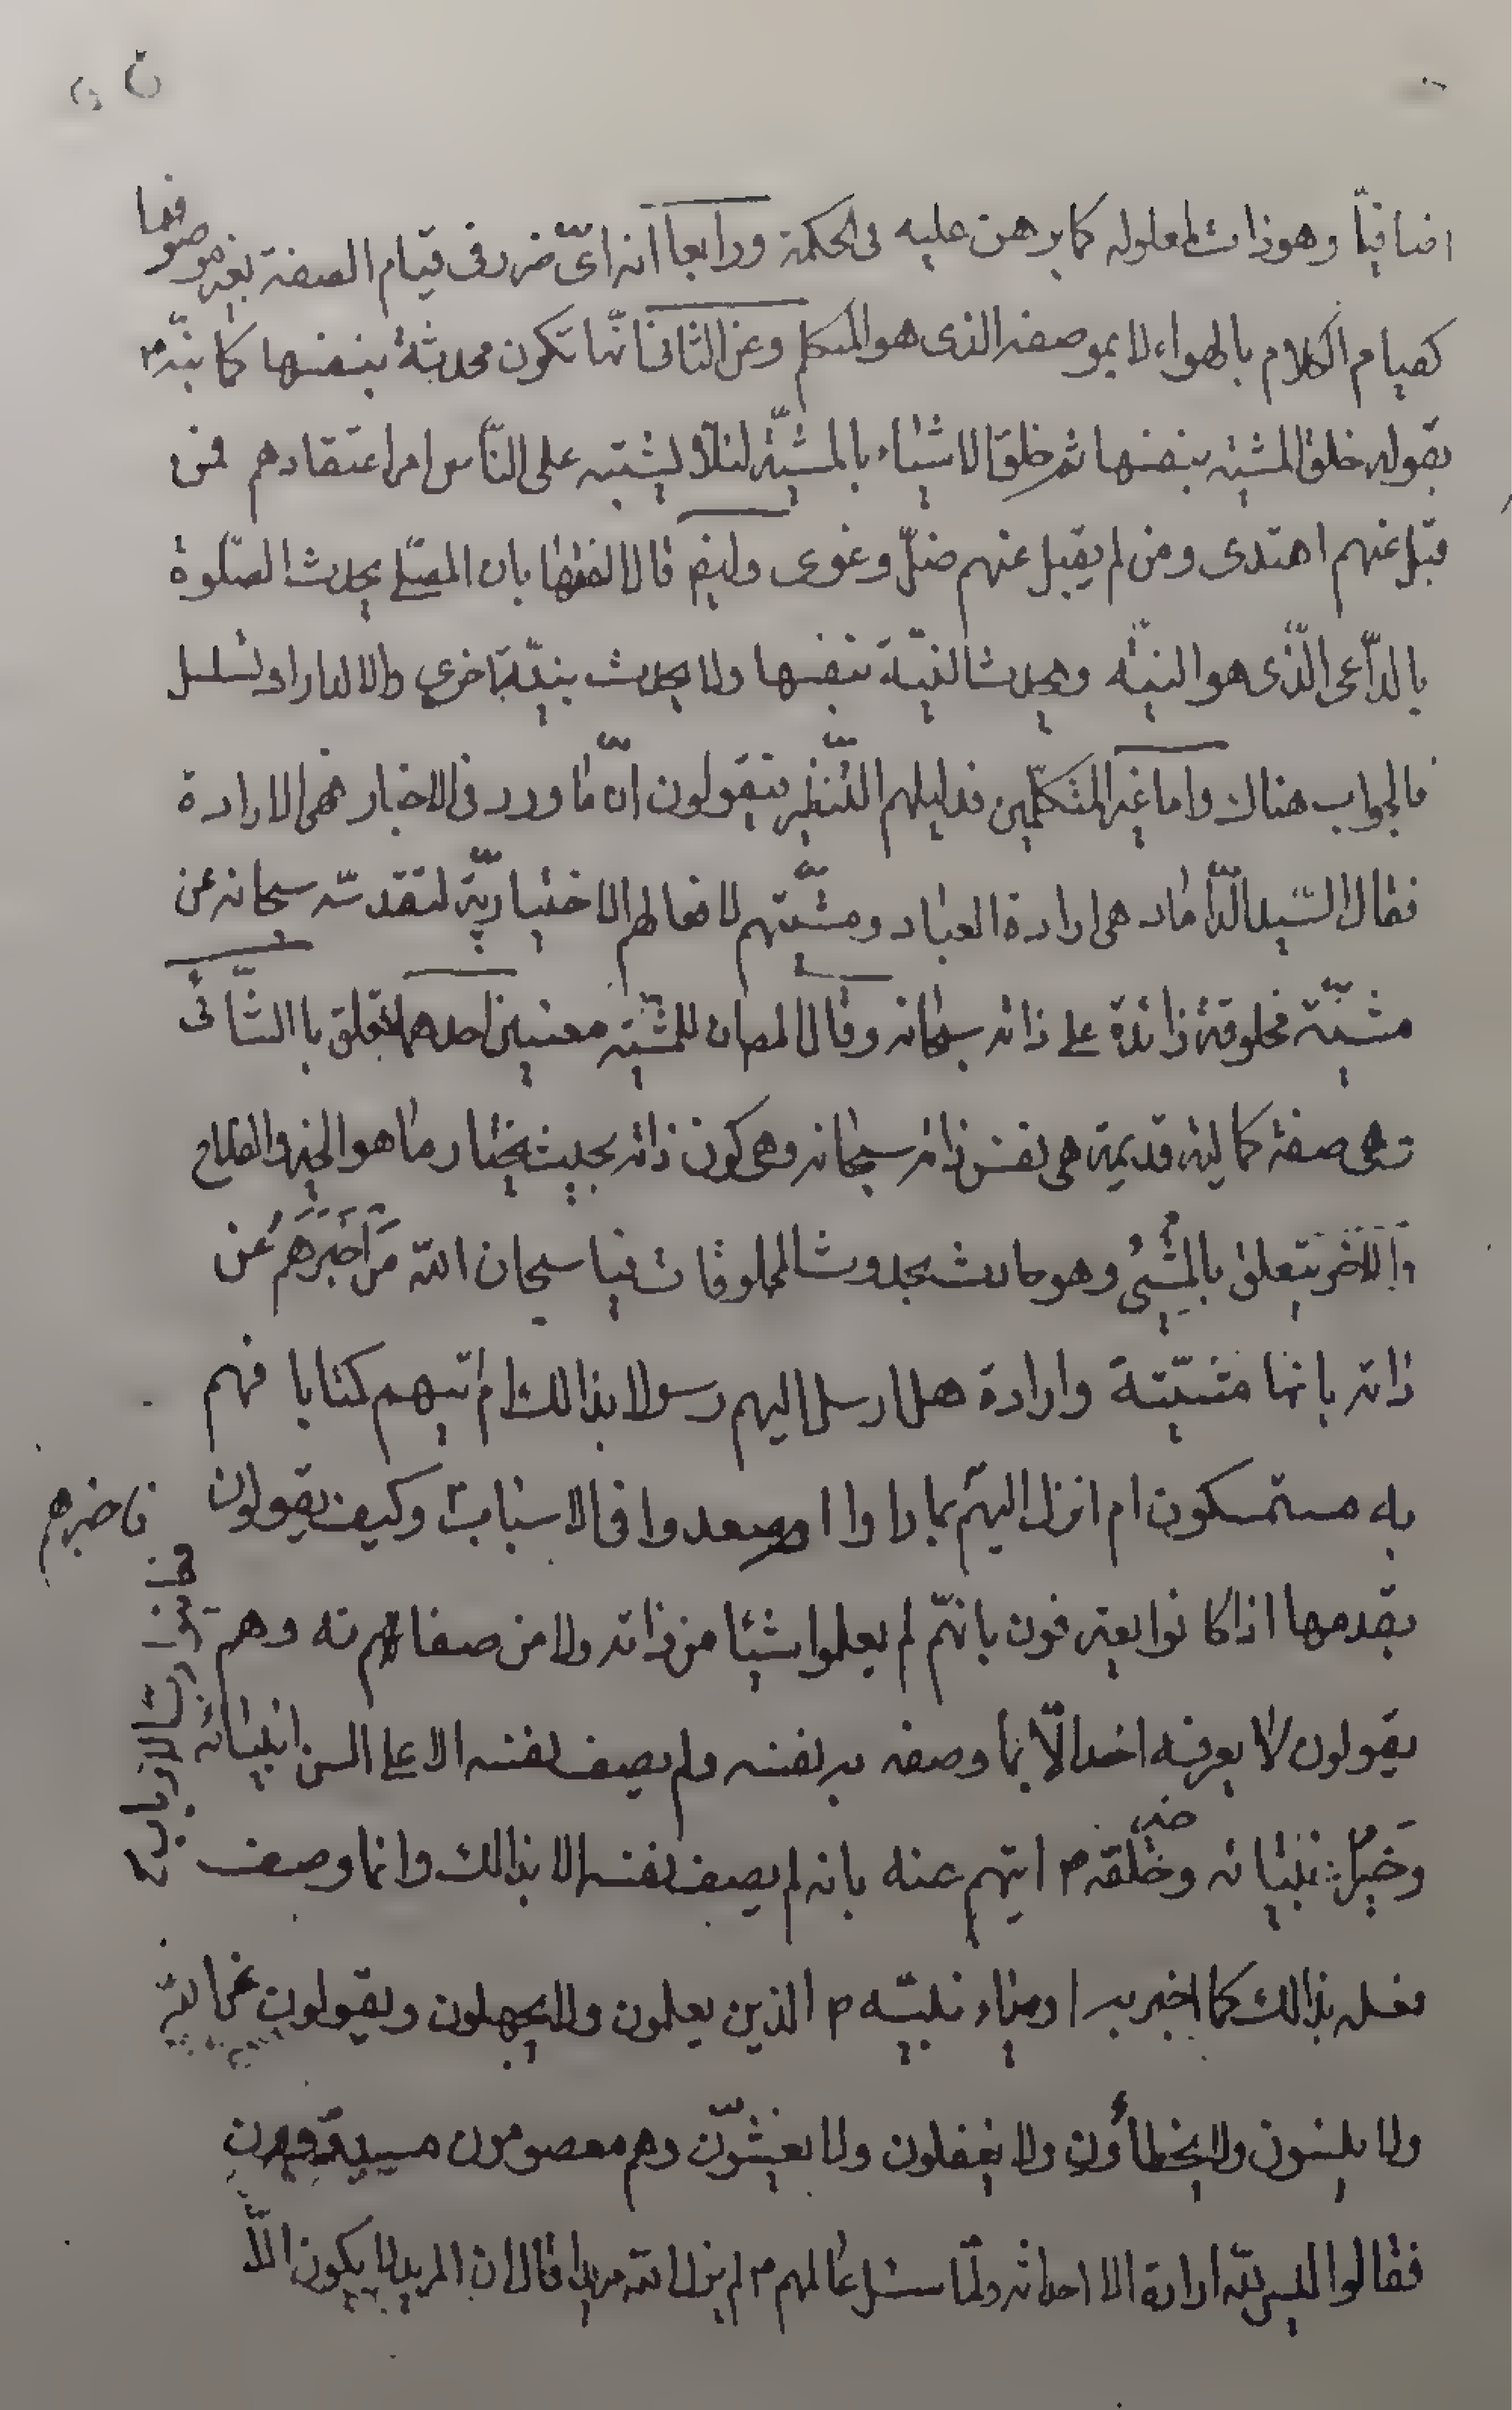 اضافيّا وهو ذات المعلوله كما برهن عليه فى الحكمة ورابعا انه اىّ ضرر فى قيام الصفة بغير موصوفها
كقيام الكلام بالهواء لا بموصفه الذى هو المتكلم وعن الثانى فانّها تكون محدثة بنفسها كما بيّنه
بقوله خلق المشيّة بنفسها ثم خلق الاشياء بالمشيّة لئلّا يشتبه على النّاس امر اعتقادهم فمن
قبل عنهم اهتدى ومن لم يقبل عنهم ضلّ وغوى وايضا قال الفقهاء بان المصلّى يحدث الصّلوة
بالدّاعى الّذى هو النيّه ويحدث النيّة بنفسها ولا يحدث بنيّة اخرى والا لدار او تسلسل
فالجواب هناك واما غير المتكلّمين فدليلهم التّنظير فيقولون انّ ما ورد فى الاخبار فهى الارادة
فقال السّيد الدّاماد هى ارادة العباد ومشيّتهم لافعالهم الاختياريّة لتقدسّه سبحانه عن
مشيّة مخلوقة زائدة على ذاته سبحانه وقال للمشيّة معنيين احدهما يتعلق بالشّائى
وهى صفة كمالية قديمة هى نفس ذاته سبحانه وهى كون ذاته بحيث يختار ما هو الخير والصلاح
والاخر يتعلق بالمشىُ وهو حادث بحدوث المخلوقات فيا سبحان اللّه مَن اَخبَرَهُم عَن
ذاته بانها مشيّة وارادة هل ارسل اليهم رسولا بذالك ام اتيهم كتابا فهم
به مستمسكون ام انزل اليهم بما ارادوا ا وصعدوا فى الاسباب وكيف يقولون
فاخبرهم
بقدمها اذا كانوا يعترفون بانهّم لم يعلموا شيئا من ذاته ولا من صفاته وهم
يقولون لا يعرفه احد الّا بما وصفه به نفسه ولم يصف نفسه الا على السن انبيائه
وخبر انبيائه وخلقه ايتهم عنه بانه لم يصف نفسه الا بذالك وانما وصف
فعله بذالك كما اخبر به اوصياء نبيّه الذين يعلمون ولا يجهلون ويقولون عن اللّه
ولا ينسون ولا يخطأون ولا يغفلون ولا يغشّون وهم معصومون
فقالوا ليس للّه ارادة الا احداثه ولمّا سئل عالمهم لم يزل اللّه مريدا قال ان المريد لا يكون الّا